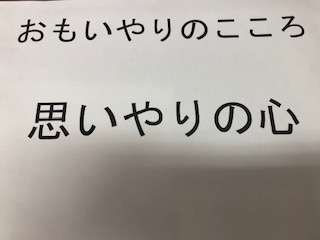 おもいやりのこころ
思いやりの心